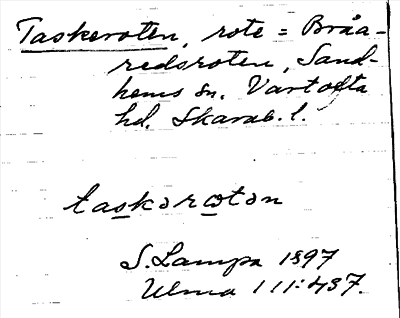 Taskeroten, rote = Bråa-
redsroten, Sand-
hems sn. Vartofta
hd. Skarab. l.
taskərωtən
S. Lampa 1897
Ulma 111:437.